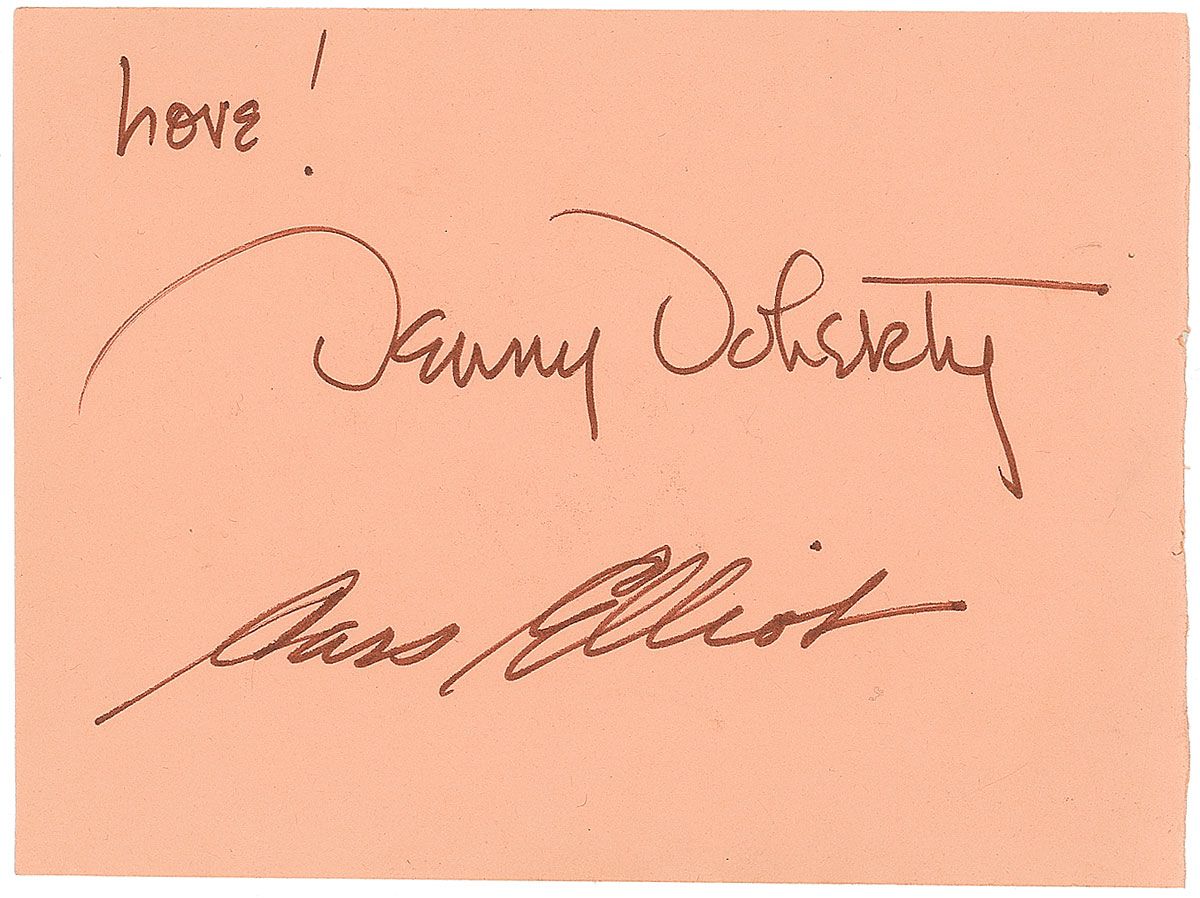 Love!
Denny Doherty
Cass Elliot